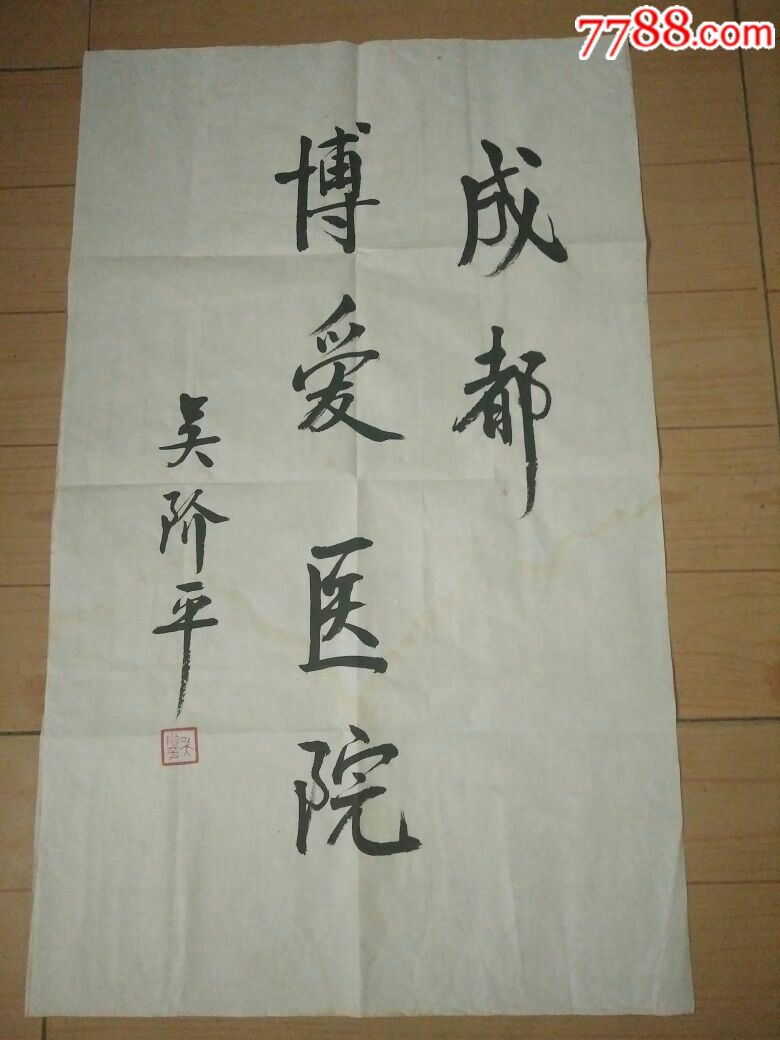 7788.com
成都
博爱医院
吴阶平